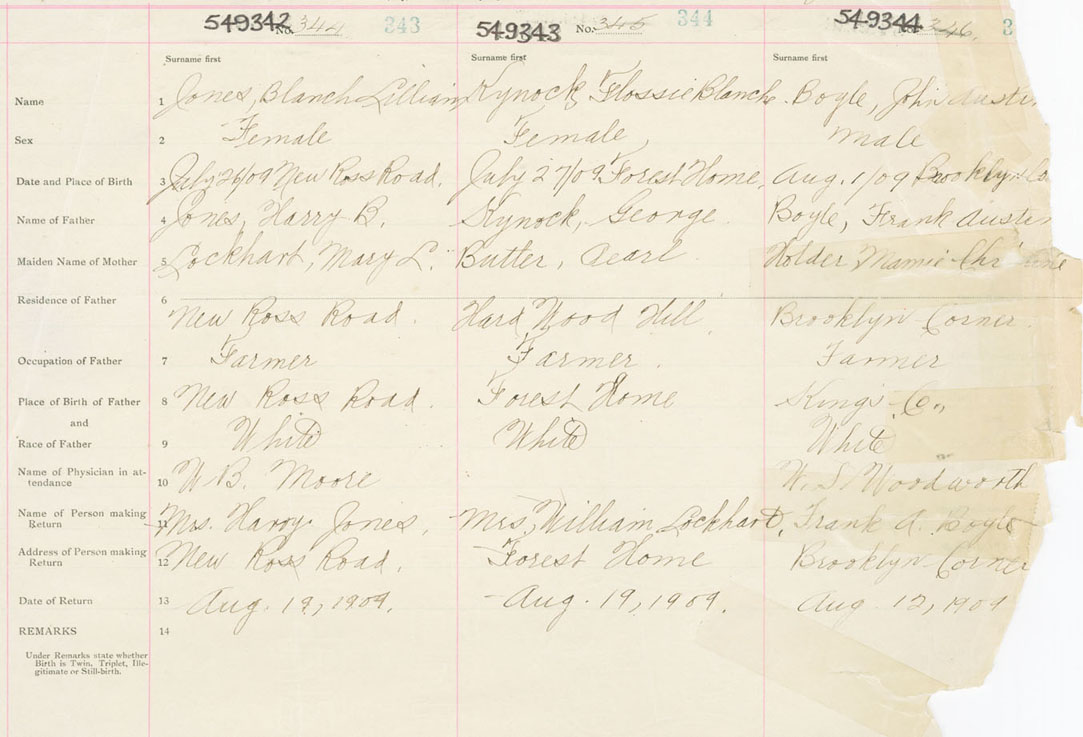 549342 No. 344 343 549343 No. 345 344 549344 346. 3
Surname first Surname first Surname first
Name 1 Jones, Blanch Lillian Kynock, Flossie Blanch. Boyle, John Austi
Sex 2 Female Female, Male
Date and Place of Birth 3 July 26/09 New Ross Road. July 27/09 Forest Home, Aug. 1/09 Brooklyn Co
Name of Father 4 Jones, Harry B. Kynock, George Boyle, Frank Austin
Maiden Name of Mother 5 Lockhart, Mary L. Butler, Pearl Holder Mamie
Residence of Father 6
New Ross Road. Hard Wood Hill. Brooklyn Corner.
Occupation of Father 7 Farmer Farmer. Farmer
Place of Birth of Father 8 New Ross Road. Forest Home Kings Co,,
and
Race of Father 9 White White White
Name of Physician in at-
tendance 10 W B. Moore W. S. Woodworth
Name of Person making
Return 11 Mrs. Harry Jones, Mrs, William Lockhart, Frank A. Boyle
Address of Person making
Return 12 New Ross Road. Forest Home Brooklyn Corner
Date of Return 13 Aug. 19, 1909. Aug. 19, 1909. Aug. 12, 1909
REMARKS 14
Under Remarks state whether
Birth is Twin, Triplet, Ille-
gitimate or Still-birth.